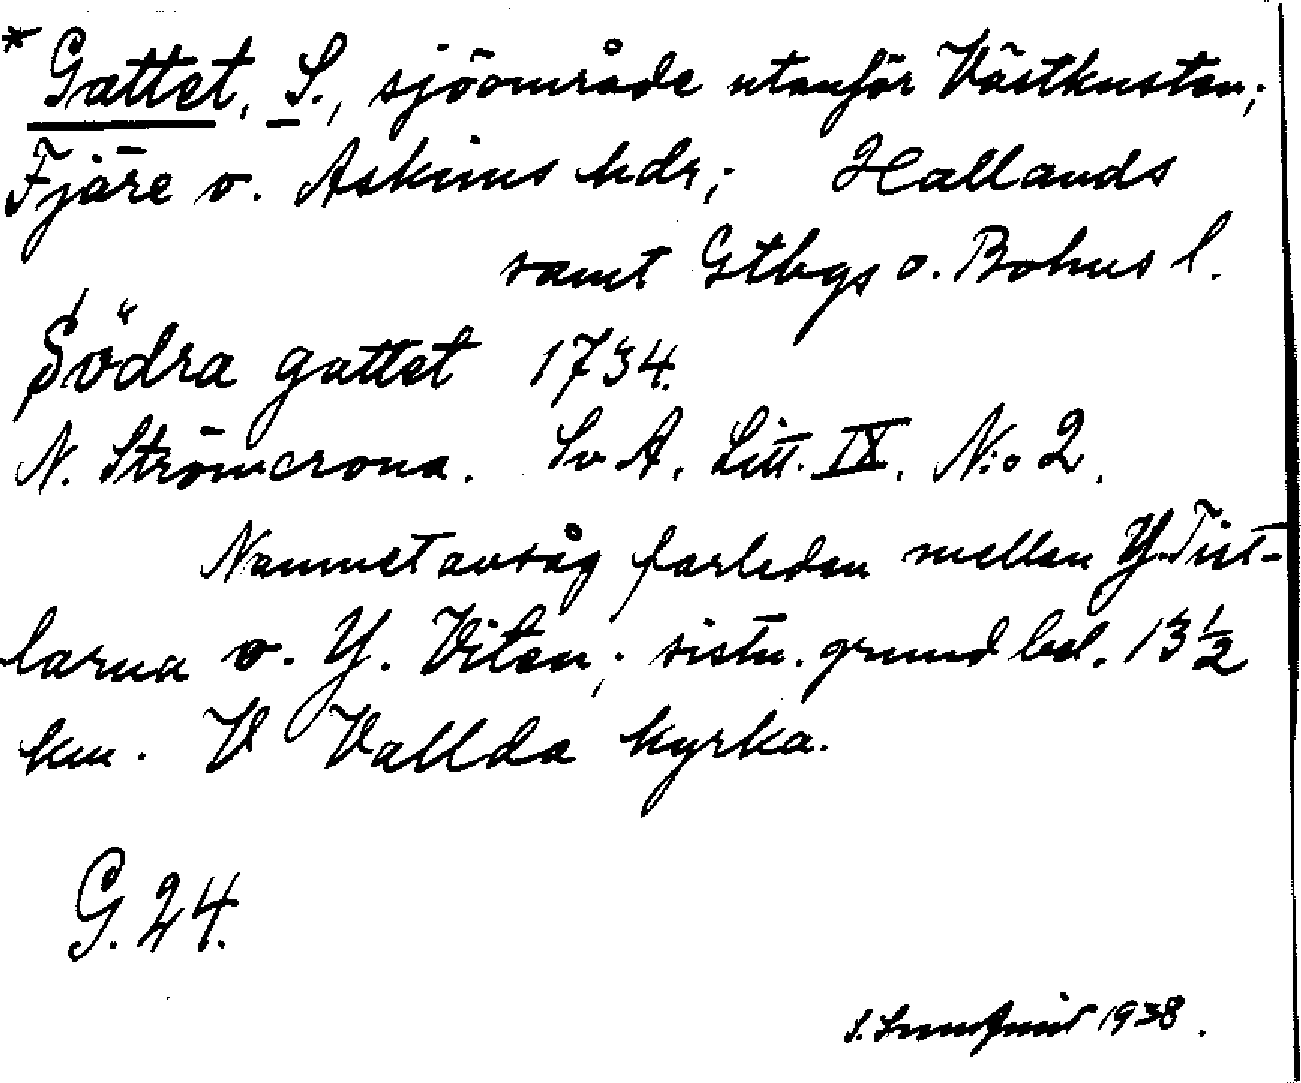 * Gattet, S., sjöområde utanför Västkusten;
Fjäre o. Askims hdr; Hallands
samt Gtbgs o. Bohus l.
Södra gattet 1734.
N. Strömcrona. Sv A. Litt. IX. N:o 2.
Namnet avsåg farleden mellan Y. Tist-
larna o. Y. Viten; sistn. grund bel. 13 1/2
km. V Vallda kyrka.
G. 24.
1938.